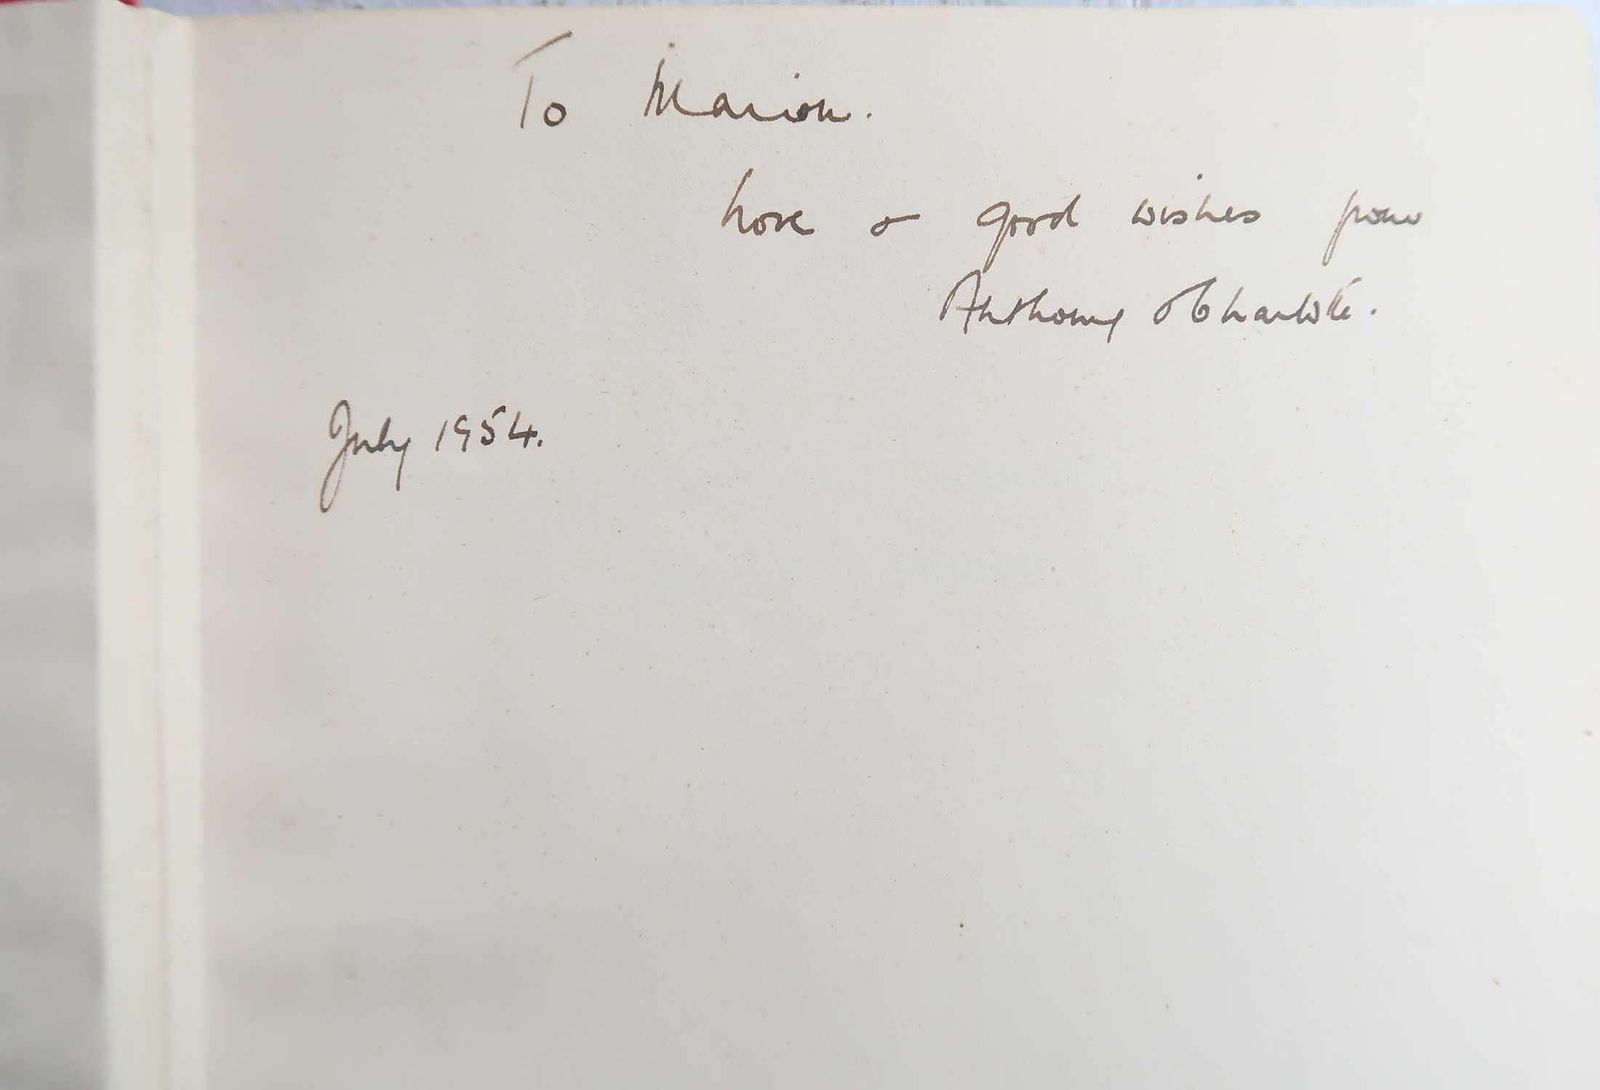 To Marion.
Love & good wishes from
Anthony & Charlotte.
July 1954.